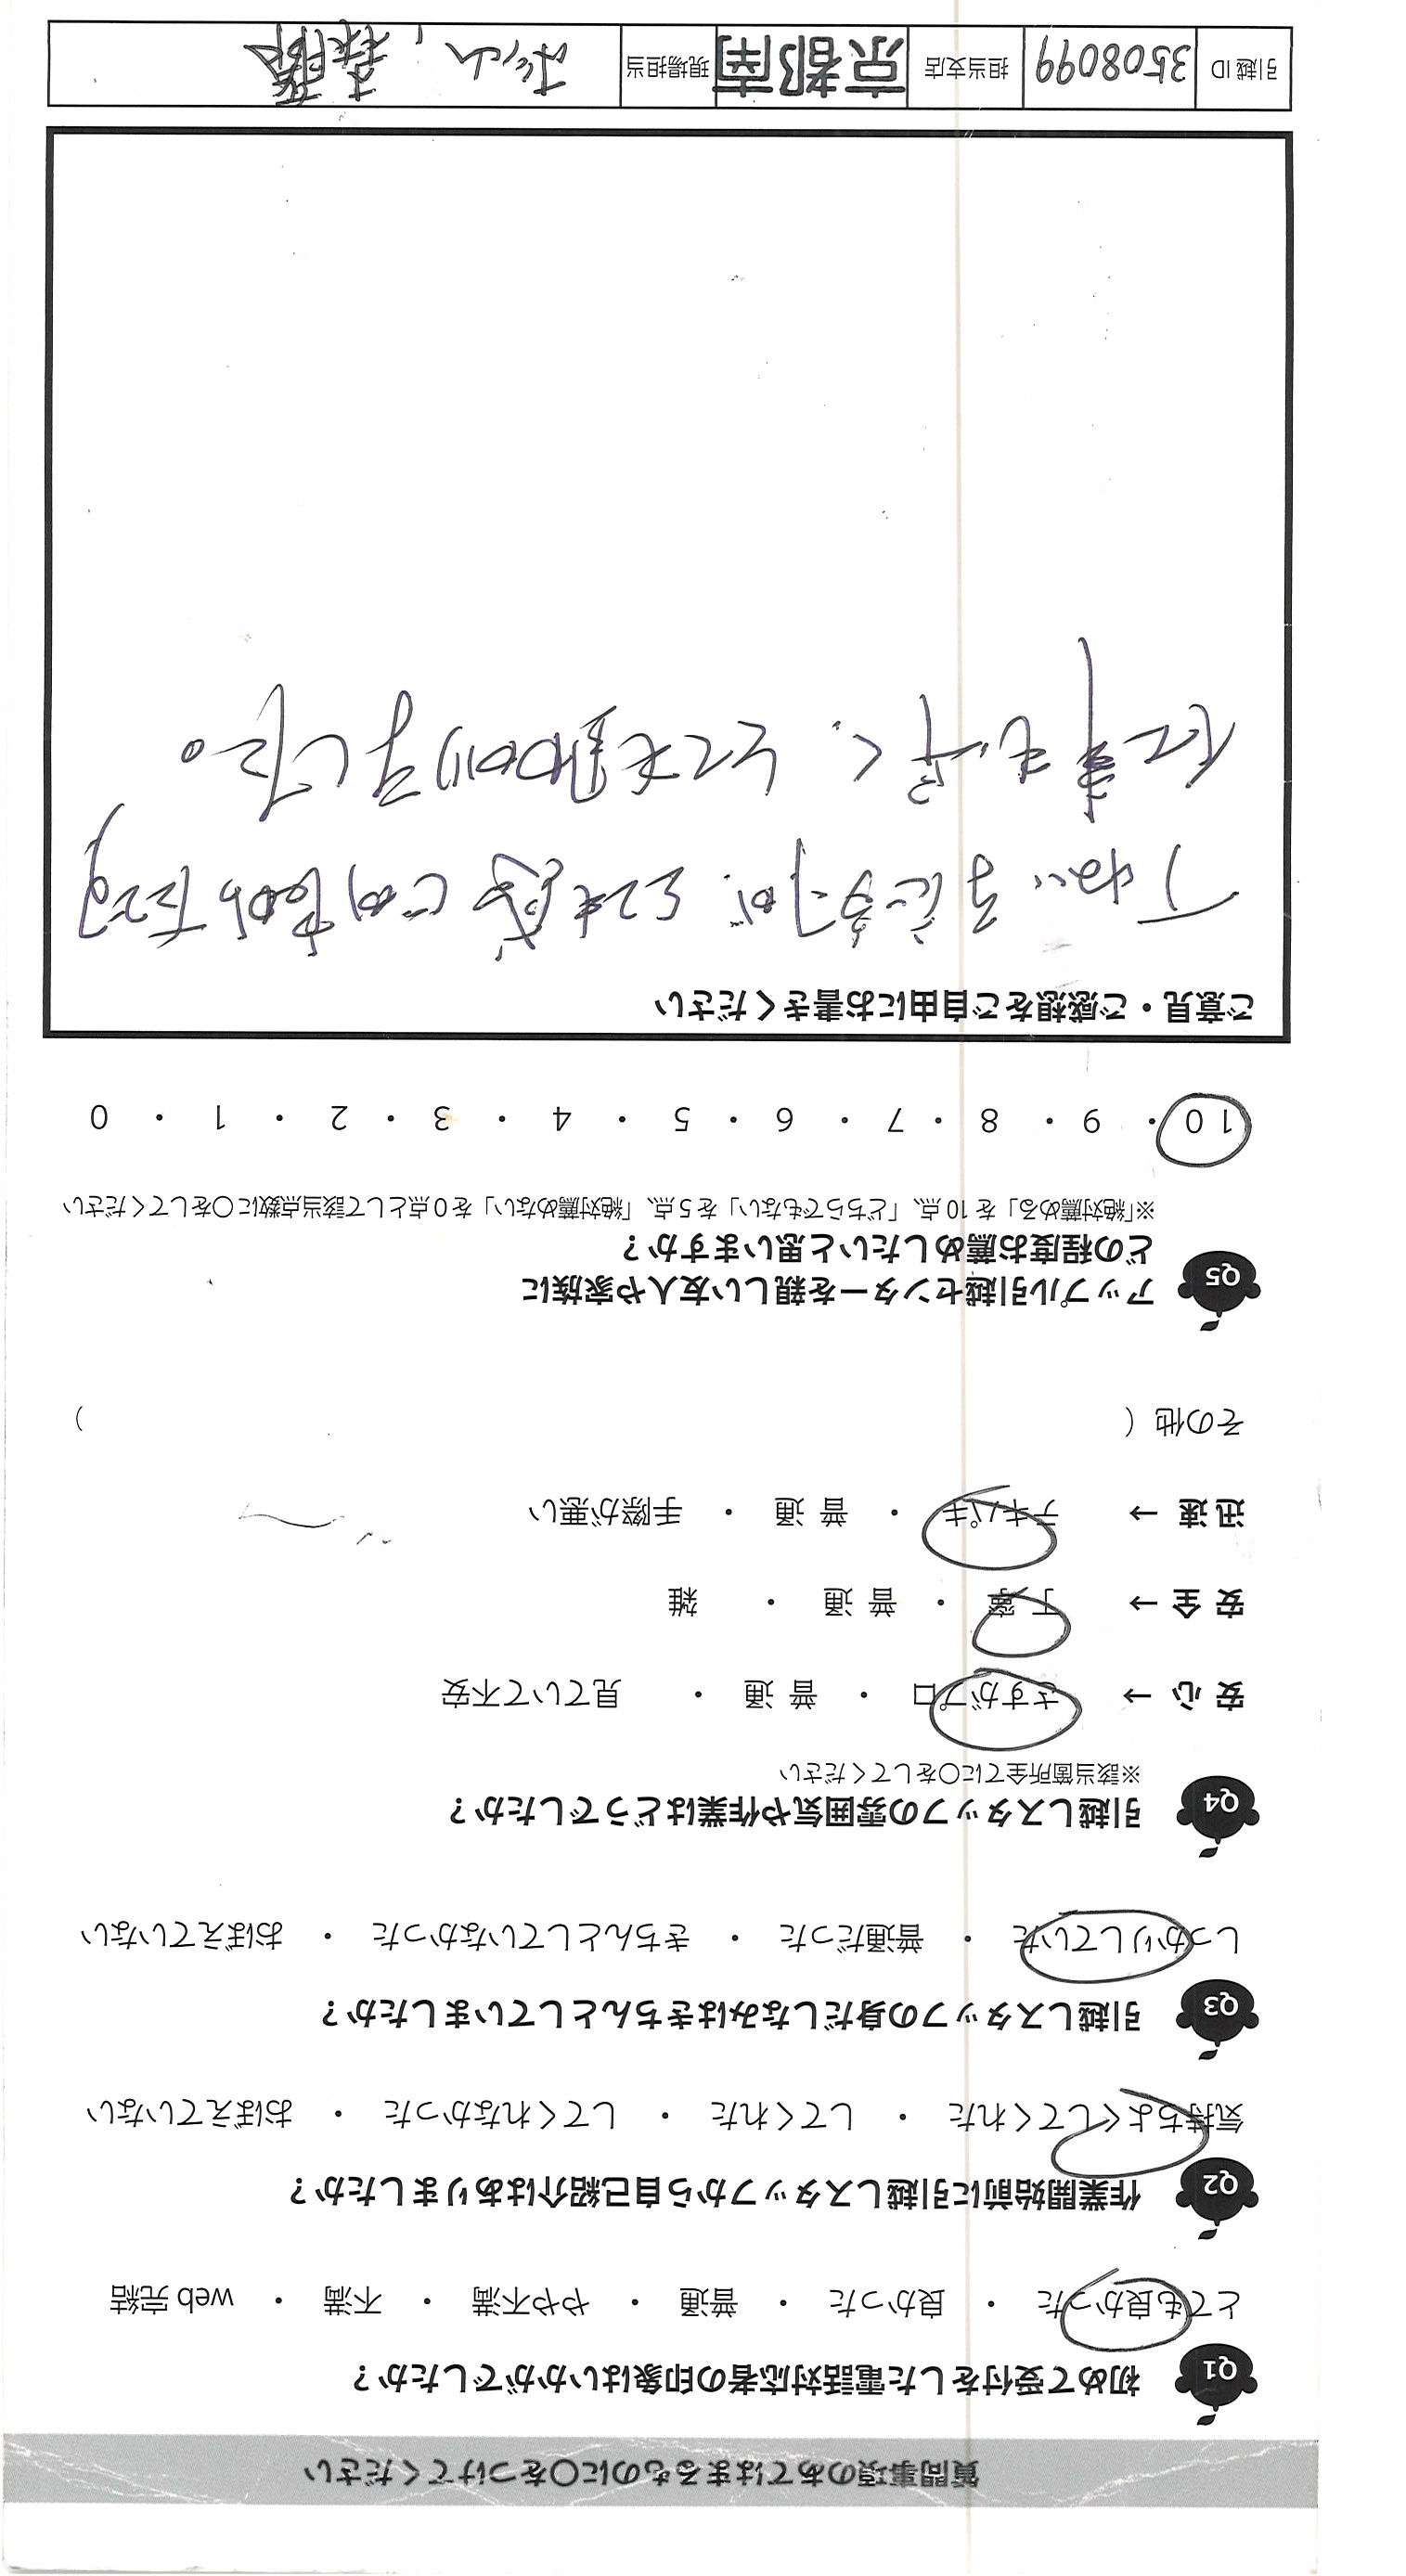 質問事項のあてはまるものに○をつけてください
Q1 初めて受付をした電話対応者の印象はいかがでしたか？
とても良かった ・ 良かった ・ 普通 ・ やや不満 ・ 不満 ・ web 完結
Q2 作業開始前に引越しスタッフから自己紹介はありましたか？
気持ちよくしてくれた ・ してくれた ・ してくれなかった ・ おぼえていない
Q3 引越しスタッフの身だしなみはきちんとしていましたか？
しっかりしていた ・ 普通だった ・ きちんとしていなかった ・ おぼえていない
Q4 引越しスタッフの雰囲気や作業はどうでしたか？
※該当箇所全てに○をしてください
安 心 → さすがプロ ・ 普 通 ・ 見ていて不安
安 全 → 丁 寧 ・ 普 通 ・ 雑
迅 速 → テキパキ ・ 普 通 ・ 手際が悪い
その他（ ）
Q5 アップル引越センターを親しい友人や家族に
どの程度お薦めしたいと思いますか？
※「絶対薦める」を 10 点、「どちらでもない」を 5 点、「絶対薦めない」を 0 点として該当点数に○をしてください
10 ・ 9 ・ 8 ・ 7 ・ 6 ・ 5 ・ 4 ・ 3 ・ 2 ・ 1 ・ 0
ご意見・ご感想をご自由にお書きください
とても感じの
仕事も早く、とても助かりました。
引越 ID 3508099 担当支店 京都南 現場担当